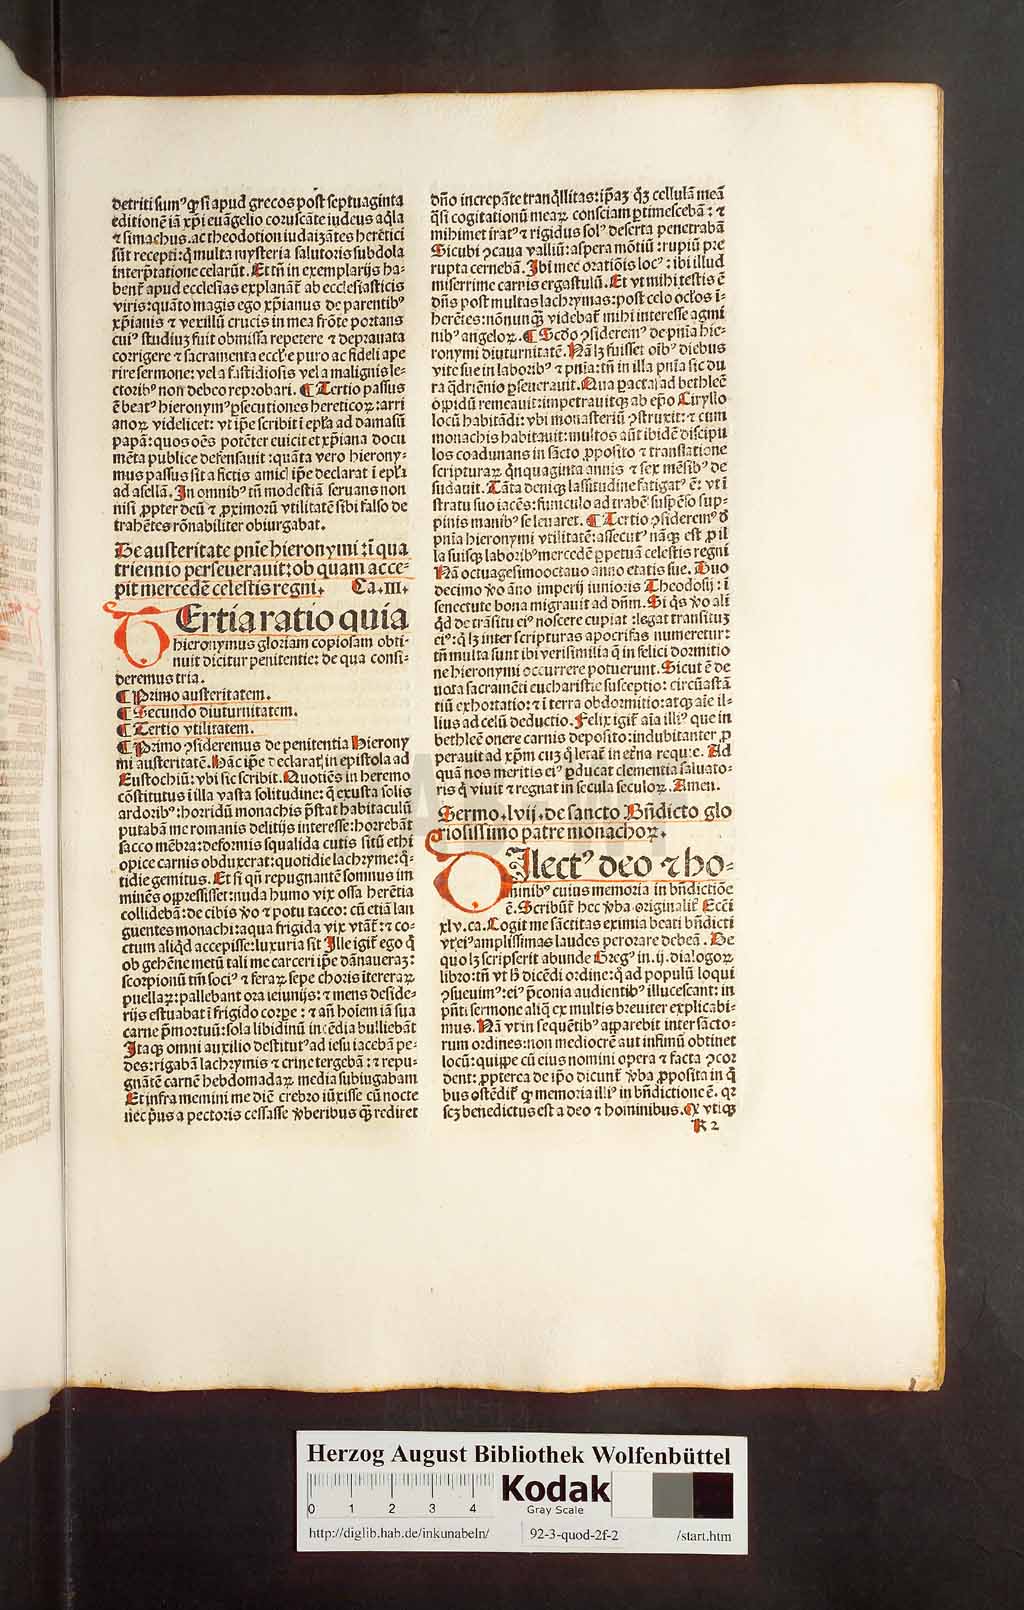 detriti sumꝰ ꝙ si apud grecos post septuaginta
editionē iā xp̄i euāgelio coruscāte iudeus aq̇la
⁊ simachus. ac theodotion iudaizātes herētici
sūt recepti: q̇ multa mysteria saluatoris subdola
interp̄tatione celarūt. Et tn̄ in exemplarijs ha-
bent̄ apud ecclesias explanāt̄ ab ecclesiasticis
viris: quāto magis ego xp̄ianus de parentibꝰ
xp̄ianis ⁊ vexillū crucis in mea frōte portans
cuiꝰ studiuꝫ fuit obmissa repetere ⁊ deprauata
corrigere ⁊ sacramenta eccl̄e puro ac fideli ape
rire sermone: vel a fastidiosis vel a malignis le-
ctoribꝰ non debeo reprobari. ¶ Tertio passus
ē beatꝰ hieronymꝰ ꝑsecutiones hereticoꝝ: arri
anoꝝ videlicet: vt ip̄e scribit ī epl̄a ad damasū
papā: quos oēs potēter euicit et xp̄iana docu
mēta publice defensauit: quāta vero hierony-
mus passus sit a fictis amic̄ ip̄e declarat ī epl̄a
ad asellā. In omnibꝰ tn̄ modestiā seruans non
nisi ꝓpter deū ⁊ ꝓximorū vtilitatē sibi falso de
trahētes rōnabiliter obiurgabat.
De austeritate pnīe hieronymi: ī qua
triennio perseuerauit: ob quam acce-
pit mercedē celestis regni. Ca. III.
TErtia ratio quia
hieronymus gloriam copiosam obti-
nuit dicitur penitentie: de qua consi-
deremus tria.
¶ Primo austeritatem.
¶ Secundo diuturnitatem.
¶ Tertio vtilitatem.
¶ Primo ꝯsideremus de penitentia Hierony
mi austeritatē. Hāc ip̄e declarat in epistola ad
Eustochiū: vbi sic scribit. Quotiēs in heremo
cōstitutus ī illa vasta solitudine: q̄ exusta solis
ardoribꝰ: horridū monachis p̄stat habitaculū
putabā me romanis delitijs interesse: horrebāt
sacco mēbra: deformis squalida cutis sitū ethi
opice carnis obduxerat: quotidie lachryme: q̇-
tidie gemitus. Et si qn̄ repugnantē somnus im
minēs oppressisset: nuda humo vix ossa herētia
collidebā: de cibis ꝟo ⁊ potu taceo: cū etiā lan
guentes monachi: aqua frigida vix vtāt̄: ⁊ co-
ctum aliq̇d accepisse: luxuria sit Ille igit̄ ego q̇
ob gehēne metū tali me carceri ip̄e dānaueraꝫ:
scorpionū tm̄ sociꝰ ⁊ feraꝝ sepe choris ītereraꝫ
puellaꝝ: pallebant ora ieiunijs: ⁊ mens deside-
rijs estuabat ī frigido corpe: ⁊ an̄ hoīem iā sua
carne p̄mortuū: sola libidinū incēdia bulliebāt
Itaqꝫ omni auxilio destitutꝰ ad iesu iacebā pe-
des: rigabā lachrymis ⁊ crine tergebā: ⁊ repu-
gnātē carnē hebdomadaꝝ media subiugabam
Et infra memini me diē crebro iūxisse cū nocte
nec p̄us a pectoris cessasse ꝟberibus qꝫ̄ rediret
dn̄o increpāte tranq̇llitas: ip̄aꝫ qꝫ̄ cellulā meā
q̇si cogitationū meaꝝ consciam ꝑtimescebā: ⁊
mihimet iratꝰ ⁊ rigidus solꝰ deserta penetrabā
Sicubi ꝯcaua valliū: aspera mōtiū: rupiū pre
rupta cernebā. Ibi mee oratiōis locꝰ: ibi illud
miserrime carnis ergastulū. Et vt mihi testis ē
dn̄s post multas lachrymas: post celo ocl̄os ī-
herētes: nōnunqꝫ̄ videbat̄ mihi interesse agmi
nibꝰ angeloꝝ. ¶ Scd̄o ꝯsideremꝰ de pn̄ia hie-
ronymi diuturnitatē. Nā lꝫ fuisset oībꝰ diebus
vite sue in laboribꝰ ⁊ pn̄ia: tn̄ in illa pn̄ia sic du
ra q̇driēnio ꝑseuerauit. Qua ꝑacta: ad bethleē
oppidū remeauit: impetrauitqꝫ ab ep̄o Ciryllo
locū habitādi: vbi monasteriū ꝯstruxit: ⁊ cum
monachis habitauit: multos aūt ibidē discipu
los coadunans in sācto ꝓposito ⁊ translatione
scripturaꝝ q̇nquaginta annis ⁊ sex mēsibꝰ de
sudauit. Tāta deniqꝫ lassitudine fatigatꝰ ē: vt ī
stratu suo iacēs: funiculo ad trabē suspēso sup-
pinis manibꝰ se leuaret. ¶ Tertio ꝯsideremꝰ d̄
pn̄ia hieronymi vtilitatē: assecutꝰ nāqꝫ est ꝓ il
la suisqꝫ laboribꝰ mercedē ꝑpetuā celestis regni
Nā octuagesimooctauo anno etatis sue. Duo
decimo ꝟo āno imperij iunioris Theodosij: ī
senectute bona migrauit ad dn̄m. Si q̇s ꝟo alī
q̇d de trāsitu eiꝰ noscere cupiat: legat transituꝫ
eiꝰ: q̇ lꝫ inter scripturas apocrifas numeretur:
tn̄ multa sunt ibi verisimilia q̄ in felici dormitio
ne hieronymi occurrere potuerunt. Sicut ē de
uota sacramēti eucharistie susceptio: circūastā
tiū exhortatio: ⁊ ī terra obdormitio: atqꝫ aīe il-
lius ad celū deductio. Felix igit̄ aīa illiꝰ que in
bethleē onere carnis deposito: indubitanter ꝓ
perauit ad xp̄m cuꝫ q̇ letat̄ in et̄na requie. Ad
quā nos meritis eiꝰ ꝑducat clementia saluato-
ris q̇ viuit ⁊ regnat in secula seculoꝝ. Amen.
Sermo. lvij. de sancto Bn̄dicto glo
riosissimo patre monachoꝝ.
DIlectꝰ deo ⁊ ho-
minibꝰ cuius memoria in bn̄dictiōe
ē. Scribūt̄ hec ꝟba originalit̄ Ecc̄i
xlv. ca. Cogit me sāctitas eximia beati bn̄dicti
vt eiꝰ amplissimas laudes perorare debeā. De
quo lꝫ scripserit abunde Gregꝰ in. ij. dialogoꝝ
libro: tn̄ vt hꝫ dicēdi ordine: q̇ ad populū loqui
ꝯsueuimꝰ: eiꝰ p̄conia audientibꝰ illucescant: in
pn̄ti sermone aliq̄ ex multis breuiter explicabi-
mus. Nā vt in sequētibꝰ apparebit inter sācto-
rum ordines: non mediocrē aut infimū obtinet
locū: quippe cū eius nomini opera ⁊ facta ꝯcor
dent: ꝓpterea de ip̄o dicunt̄ ꝟba ꝓposita in q̇
bus ostēdit̄ ꝙ memoria illiꝰ in bn̄dictione ē. qꝛ
scꝫ benedictus est a deo ⁊ hominibus. Ex vtiqꝫ
R 2
Herzog August Bibliothek Wolfenbüttel
0 1 2 3 4
Kodak
Gray Scale
http://diglib.hab.de/inkunabeln/ 92-3-quod-2f-2 /start.htm